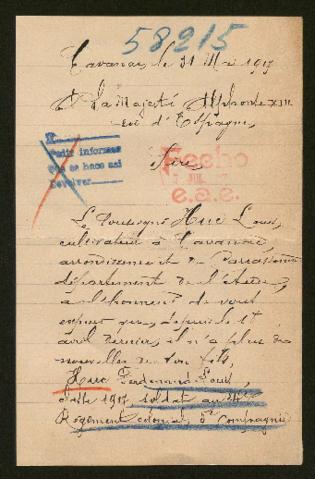 58,215
Tavanac, le 31 Mai 1917
A Sa Majesté Alphonse XIII
roi d'Espagne
Pedir informes
que se hace así
Devolver
Sire
Hecho
JUL. 7
e.a.e.
Le soussigné Huc Louis,
cultivateur à
arrondissement de
département de l'Aude,
a l'honneur de vous
exposer que, depuis le 1er
avril dernier, il n'a plus de
nouvelles de son fils,
Huc Ferdinand Louis,
classe 1917 soldat au
Régiment colonial, 5e Compagnie